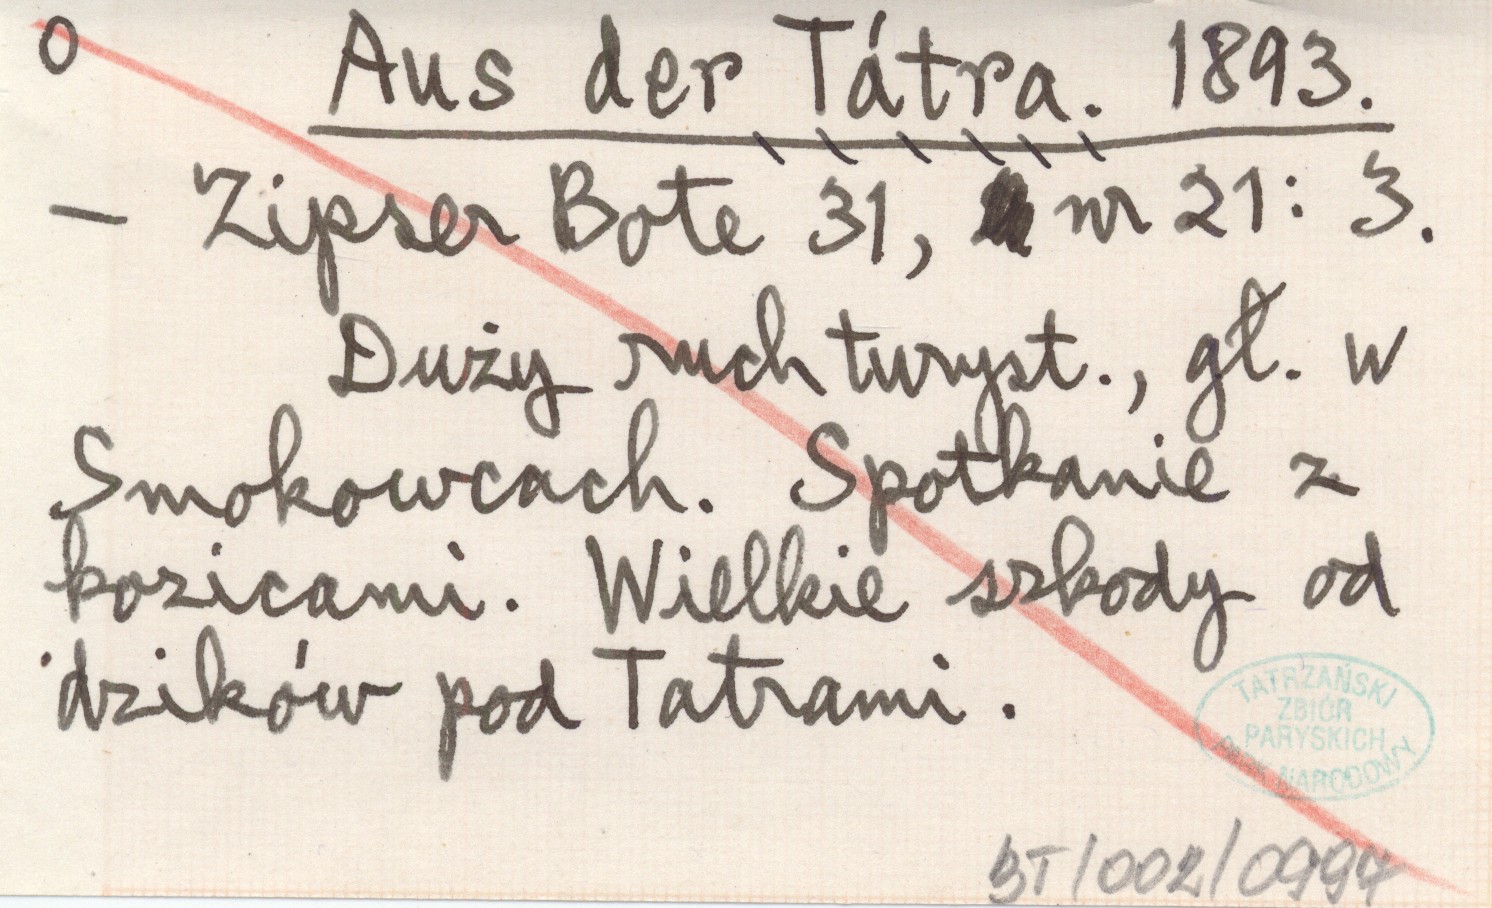 O Aus der Tátra. 1893.
— Zipser Bote 31, nr 21: 3.
Duży ruch turyst., gł. w
Smokowcach. Spotkanie z
kozicami. Wielkie szkody od
dzików pod Tatrami.
TATRZAŃSKI
ZBIÓR
PARYSKICH
PARK NARODOWY
BT/002/0997